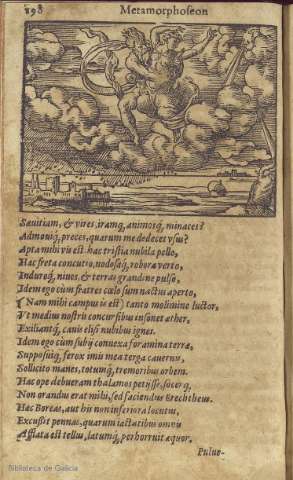 198 Metamorphoseon
Sæuitiam, & vires, iramq;, animosq; minaces?
Admouiq; preces, quarum me dedecet vsus?
Apta mihi vis est. hac tristia nubila pello,
Hac freta concutio, nodosaq; robora verto,
Induroq; niues, & terras grandine pulso,
Idem ego cùm fratres cœlo sum nactus aperto,
(Nam mihi campus is est) tanto molimine luctor,
Vt medius nostris concursibus insonet æther,
Exiliantq; cauis elisi nubibus ignes.
Idem ego cùm subij conuexa foramina terræ,
Supposuiq; ferox imis mea terga cauernis,
Sollicito manes, totumq; tremoribus orbem.
Hac ope debueram thalamos petijsse, socerq;
Non orandus erat mihi, sed faciendus Erechtheus.
Hæc Boreas, aut his non inferiora locutus,
Excussit pennas, quarum iactatibus omnis
Afflata est tellus, latumq; perhorruit æquor.
Pulue-
Biblioteca de Galicia